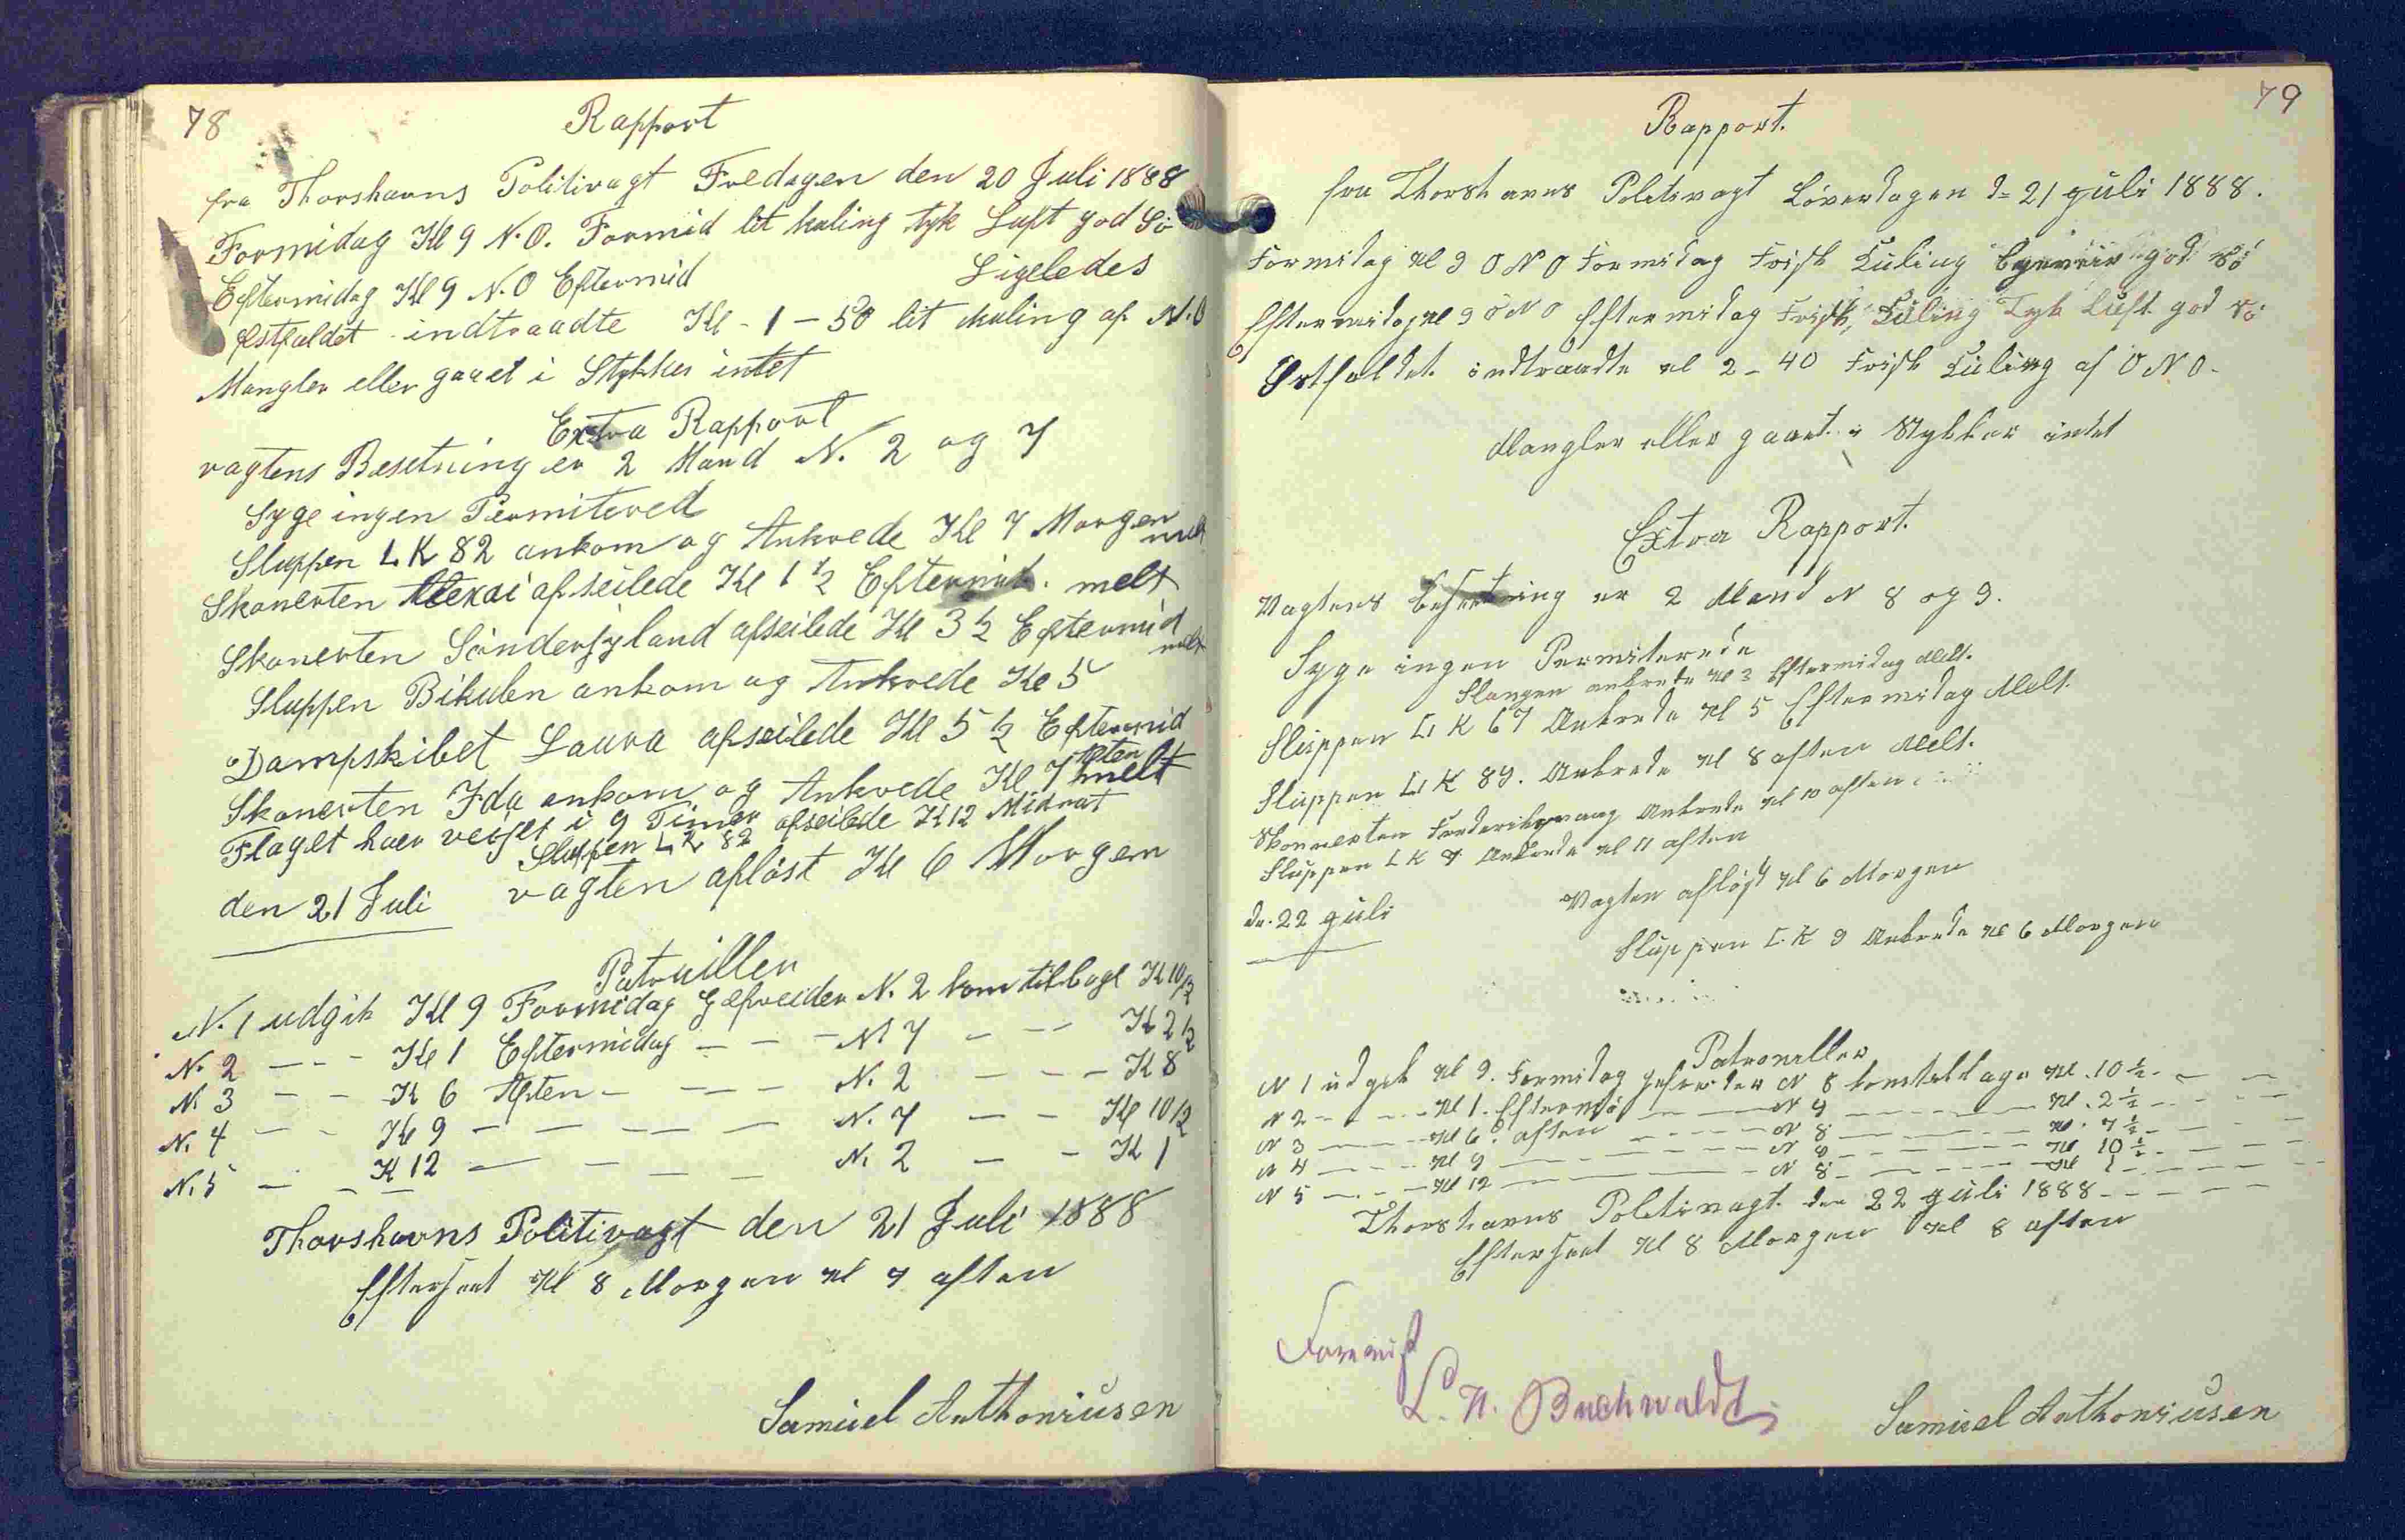 78
Rapport
fra Thorshavns Politivagt Fredagen den 20 Juli 1888
Formidag Kl 9 N.O. Formid let kuling tyk Luft god Sö
Eftermidag Kl 9 N.O Eftermid Ligeledes
Østfaldet indtraadte Kl - 1 - 50 lit kuling af N.O
Mangler eller gaaet i Stykker intet
Extra Rapport
vagtens Besetning er 2 Mand N. 2 og 7
Syge ingen Permitered
Sluppen LK 82 ankom og Ankrede Kl 7 Morgen melt
Skonerten afseilede Kl 1 ½ Eftermid. melt
Skonerten Sönderjyland afseilede Kl 3 ½ Eftermid melt
Sluppen Bikuben ankom og Ankrede Kl 5
Dampskibet Laura afseilede Kl 5 ½ Eftermid
Skonerten Ida ankom og Ankrede Kl 7 Aften melt
Flaget haer veiflet i 9 Timer
Sluppen LK 82 afseilede Kl 12 Midnat
den 21 Juli vagten aflöst Kl 6 Morgen
Patruiller
N. 1 udgik Kl 9 Formidag Gefreider N. 2 kom tilbage Kl 10½
N. 2 - - - Kl 1 Eftermidag - - - N 7 - - - Kl 2½
N. 3 - - Kl 6 Aften - - - - N. 2 - - - Kl 8
N. 4 - - Kl 9 - - - - - N. 7 - - Kl 10½
N. 5 - - Kl 12 - - - - N. 2 - - Kl 1
Thorshavns Politivagt den 21 Juli 1888
Efterseet Kl 8 Morgen Kl 7 aften
Samuel Anthoniusen
79
Rapport.
fra Thorshavns Politivagt Löverdagen d= 21 Juli 1888.
Formidag Kl 9 O N O Formidag Frisk Kuling god Sö
Eftermidag Kl 9 O N O Eftermidag Frisk Kuling Tyk Luft god Sö
Østfaldet indtraadte Kl 2 - 40 Frisk Kuling af O N O -
Mangler eller gaaet i Stykker intet
Extra Rapport.
Vagtens Besetning er 2 Mand N 8 og 9.
Syge ingen Permiterede
ankrede Kl 3 Eftermidag Melt.
Sluppen L K 67 Ankrede Kl 5 Eftermidag Melt.
Sluppen L K 89. Ankrede Kl 8 aften Melt.
Skonnerten Frederiksvaag Ankrede Kl 10 aften
Sluppen L K 7 Ankrede Kl 11 aften
dn. 22 Juli Vagten afløst Kl 6 Morgen
Sluppen L. K 9 Ankrede Kl 6 Morgen
Patroueller
N 1 udgik Kl 9. Formidag gefreider N 8 kom tilbage Kl. 10 ½ - - -
N 2 - - - Kl 1. Eftermid - - - N 9 - - - Kl. 2 ½ - - -
N 3 - - - Kl 6. aften - - - N 8 - - - Kl. 7 ½ - - -
N 4 - - - Kl 9 - - - N 9 - - - Kl 10 ½ - - -
N 5 - - - Kl 12 - - - N 8 - - - Kl 1 - - -
Thorshavns Politivagt. den 22 Juli 1888 - - - -
Efterseet Kl 8 Morgen Kl 8 aften
Forevist
L. N. Buchwaldt
Samuel Anthoniusen